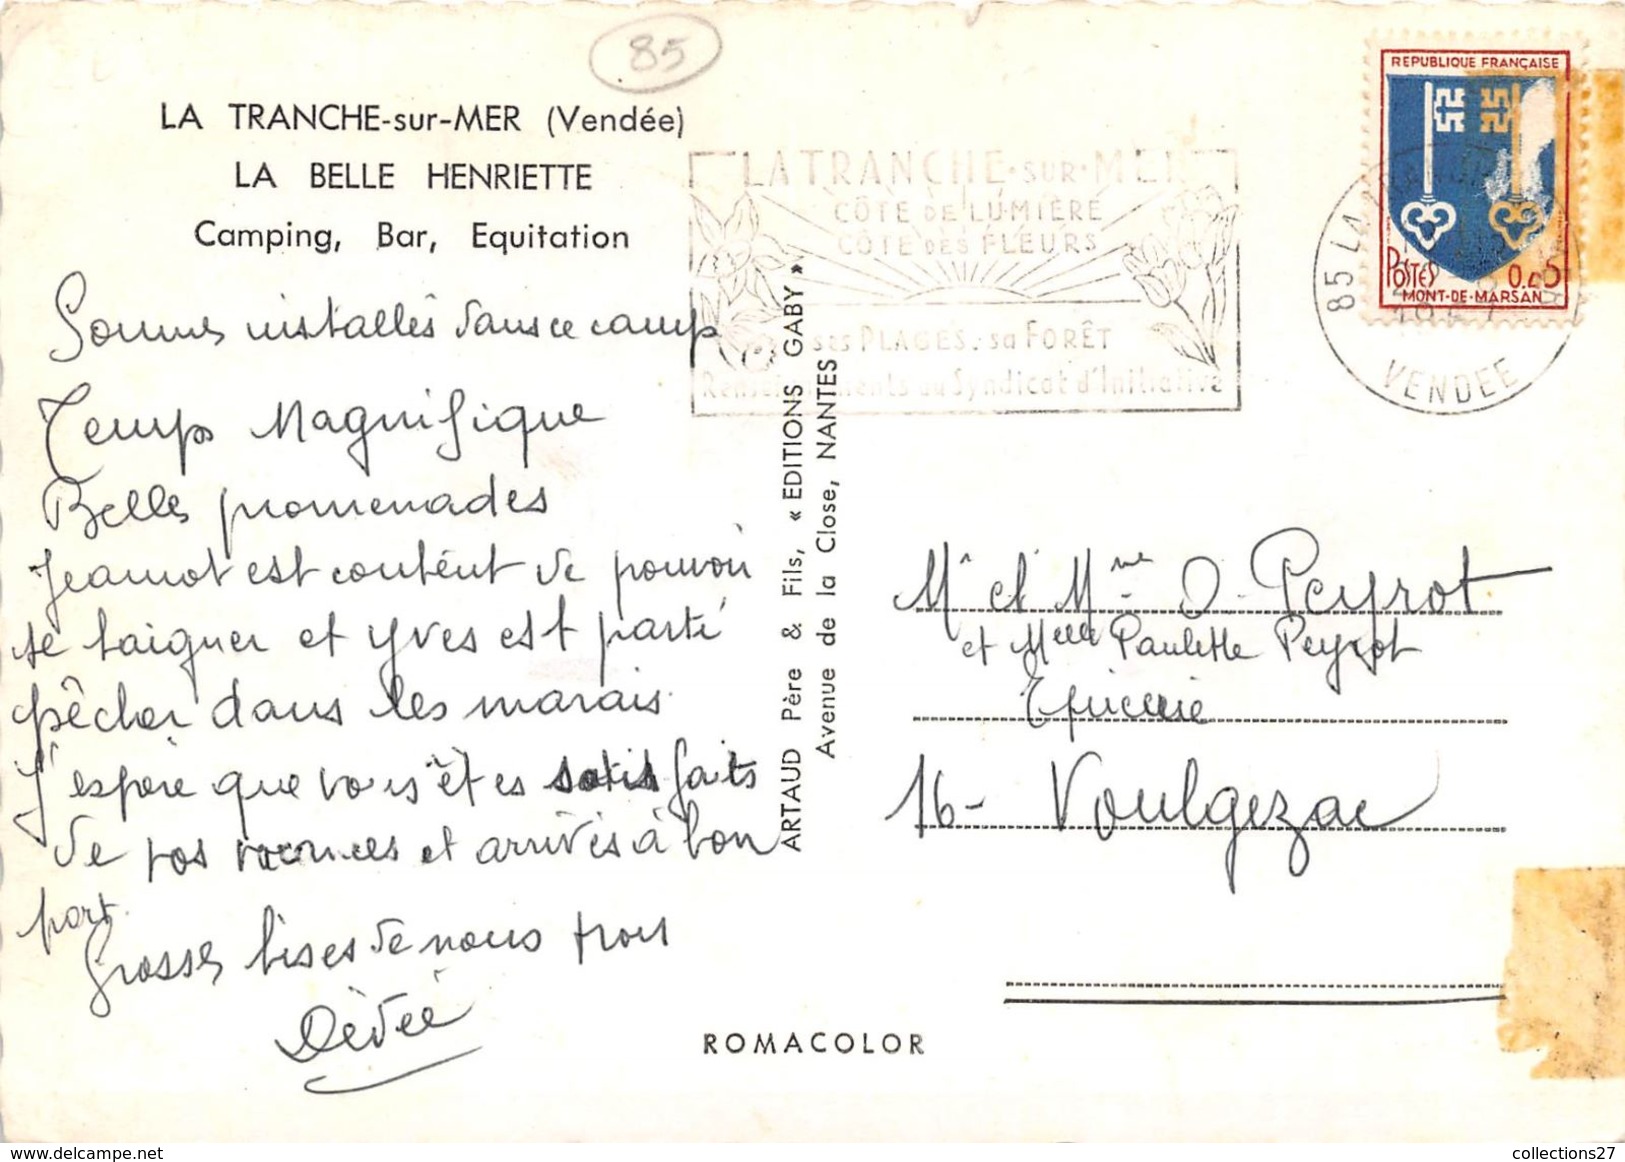 85
LA TRANCHE-sur-MER (Vendée)
LA BELLE HENRIETTE
Camping, Bar, Equitation
Sommes installés dans ce camp
Temps Magnifique
Belles promenades
Jeannot est content de pouvoir
se baigner et Yves est parti
pêcher dans les marais
J'espère que vous êtes satisfaits
de vos vacances et arrivés à bon
port.
Grosses bises de nous trois
Dédée
ARTAUD Père & Fils, « EDITIONS GABY »
Avenue de la Close, NANTES
ROMACOLOR
LA TRANCHE-SUR-MER
CÔTE DE LUMIÈRE
CÔTE DES FLEURS
ses PLAGES. sa FORÊT
Renseignements au Syndicat d'Initiative
REPUBLIQUE FRANÇAISE
POSTES 0.05
MONT-DE-MARSAN
85 LA
VENDEE
Mr et Mme O. Peyrot
et Melle Paulette Peyrot
Epicerie
16- Voulgezac
collections27